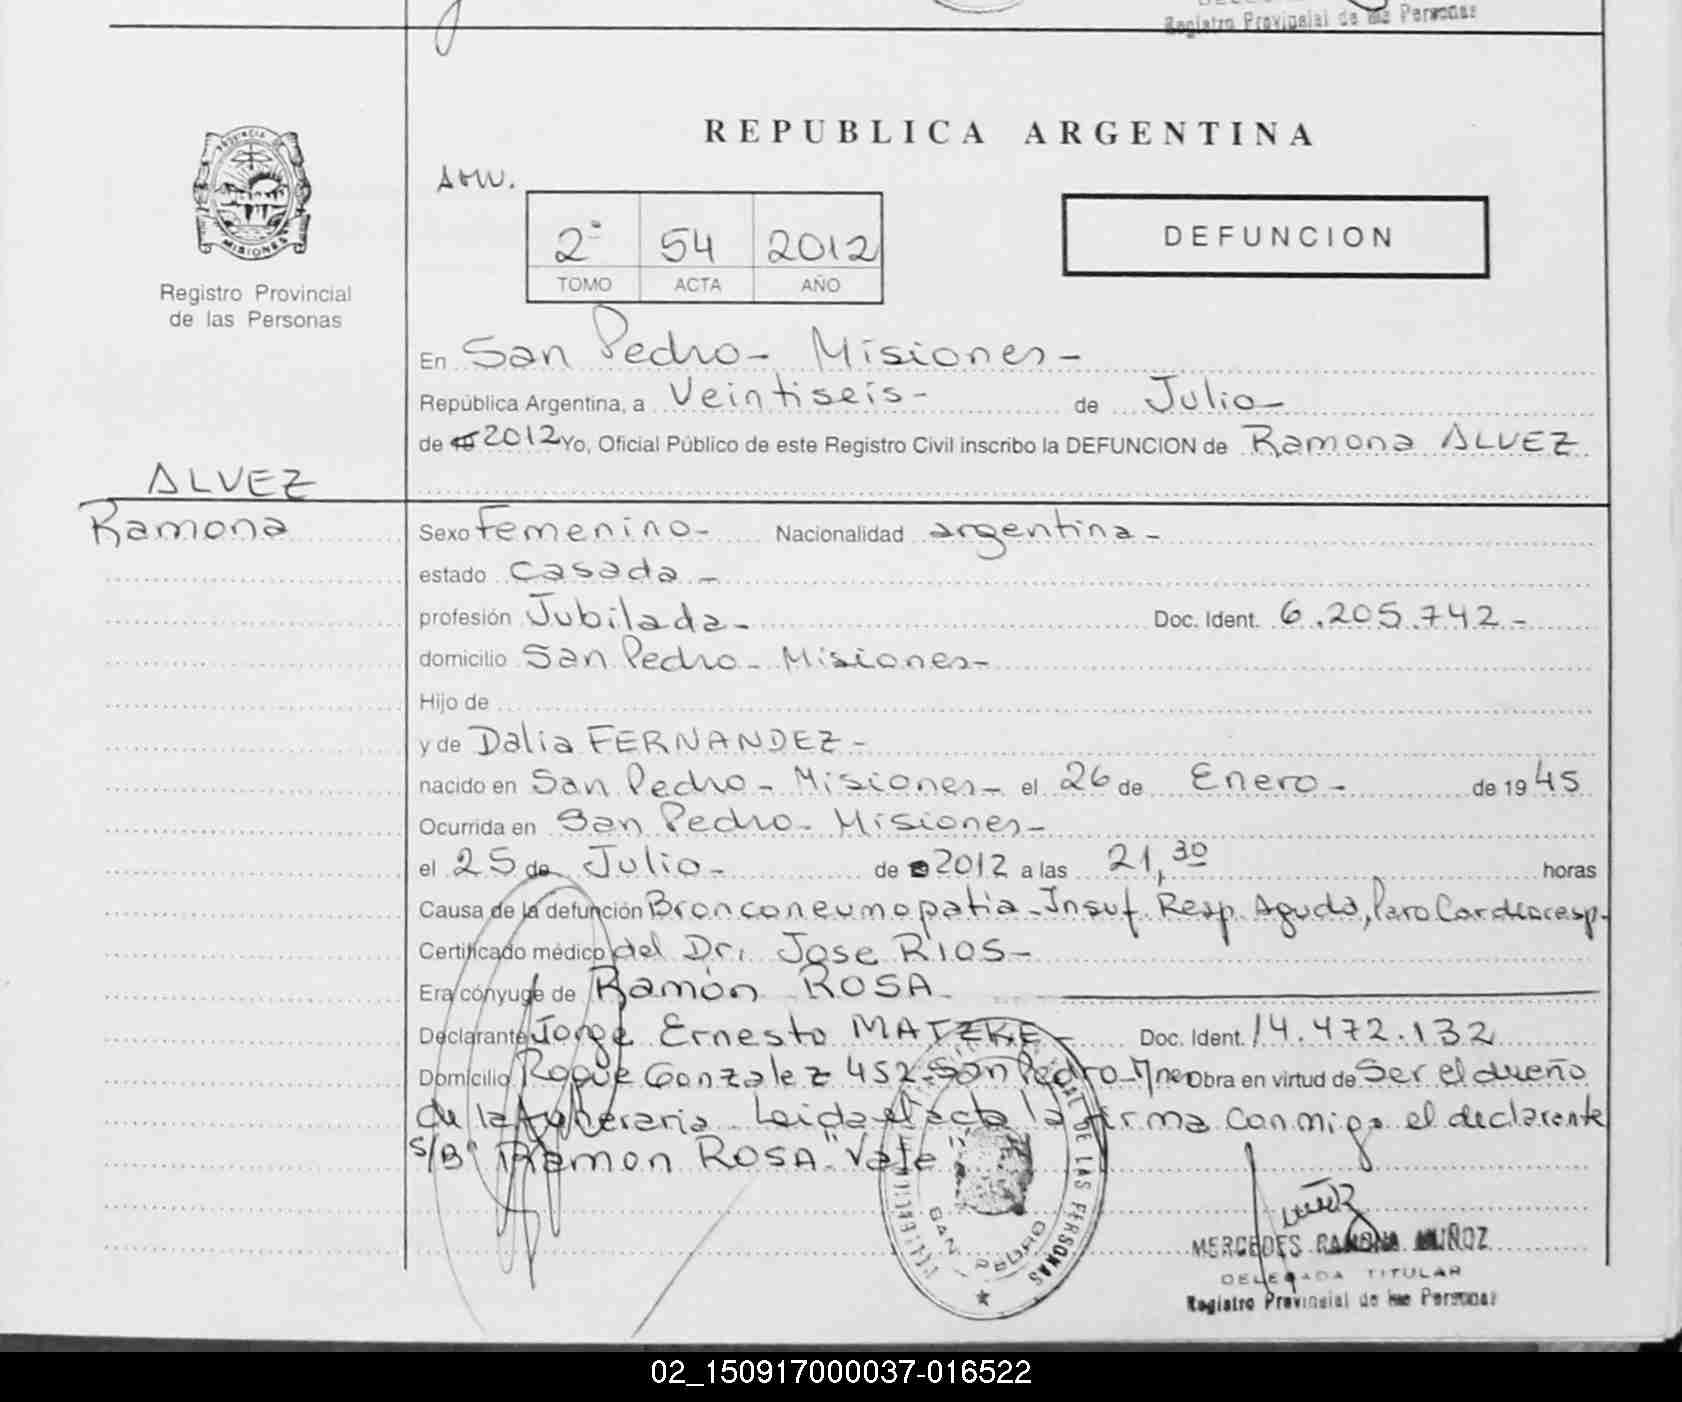 Registro Provincial de las Personas
REPUBLICA ARGENTINA
PROVINCIA DE
MISIONES
Registro Provincial
de las Personas
2º 54 2012
TOMO ACTA AÑO
DEFUNCION
En San Pedro - Misiones -
República Argentina, a Veintiseis - de Julio -
de 2012 Yo, Oficial Público de este Registro Civil inscribo la DEFUNCION de Ramona ALVEZ
ALVEZ
Ramona
Sexo Femenino - Nacionalidad argentina -
estado Casada -
profesión Jubilada - Doc. Ident. 6.205.742 -
domicilio San Pedro - Misiones -
Hijo de
y de Dalia FERNANDEZ -
nacido en San Pedro - Misiones - el 26 de Enero - de 1945
Ocurrida en San Pedro - Misiones -
el 25 de Julio - de 2012 a las 21,30 horas
Causa de la defunción Bronconeumopatia - Insuf. Resp. Aguda, Paro Cardioresp.
Certificado médico del Dr. Jose RIOS -
Era cónyuge de Ramón ROSA
Declarante Jorge Ernesto MATZKE - Doc. Ident. 14.472.132
Domicilio Roque Gonzalez 452 - San Pedro - Mnes Obra en virtud de Ser el dueño
de la funeraria. Leida el acta la firma conmigo el declarante
S/B "Ramon ROSA" Vale"
DE LAS PERSONAS
SAN PEDRO
MERCEDES RAMONA MUÑOZ
DELEGADA TITULAR
Registro Provincial de las Personas
02_150917000037-016522